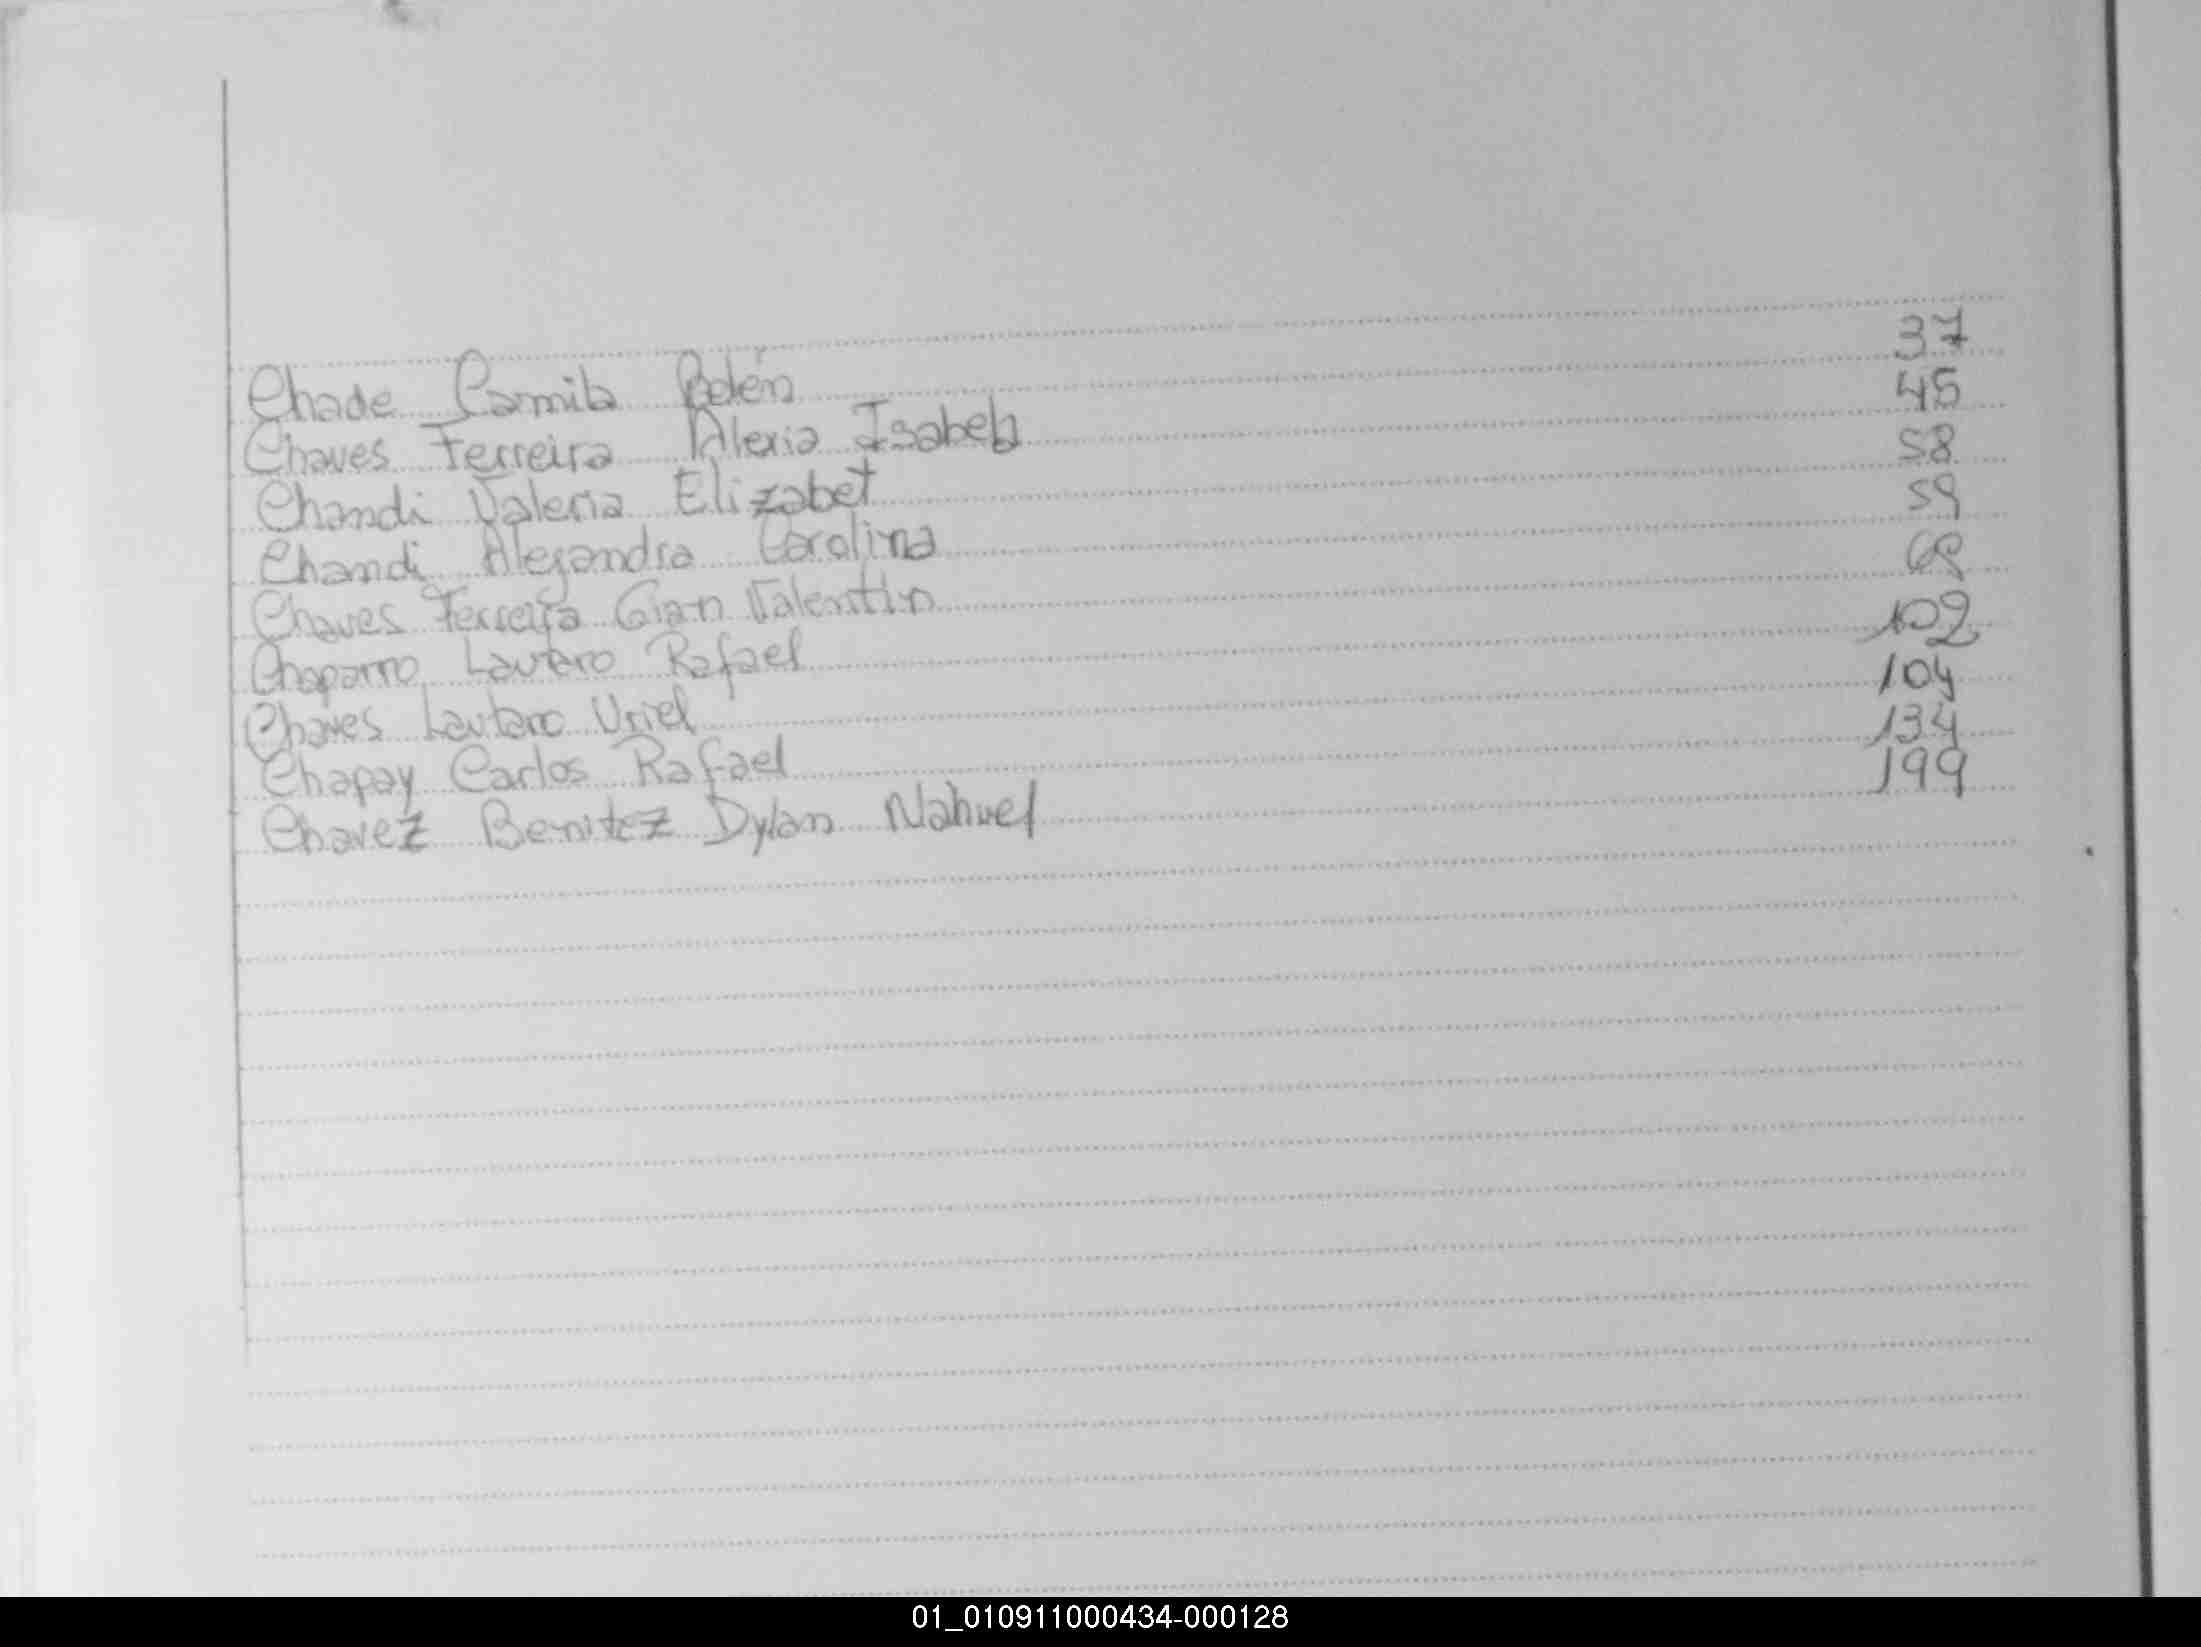 Chade Camila Belén 37
Chaves Ferreira Alexia Isabela 45
Chandi Valeria Elizabet 58
Chandi Alejandra Carolina 59
Chaves Ferreira Gian Valentin
Chaparro Lautaro Rafael 102
Chaves Lautaro Uriel 104
Chapay Carlos Rafael 134
Chavez Benitez Dylan Nahuel 199
01_010911000434-000128